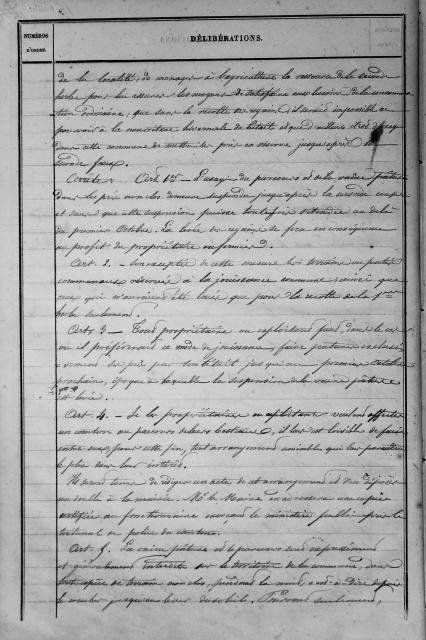 NUMÉROS
D'ORDRE.
DÉLIBÉRATIONS.
de la localité, de ménager à l'agriculture la ressource de la seconde
herbe pour lui assurer les moyens de satisfaire aux besoins de la consomma
tion ; que sans la récolte de regain, il serait impossible de
pourvoir à la nourriture hivernale du bétail et que d'ailleurs
dans cette commune de mettre les prés en réserve jusqu'après la
seconde faux.
Arrête : Art. 1er — L'usage du parcours et de la vaine pâture
dans les prés non clos demeure suspendu jusqu'après la seconde coupe
et sans que cette suspension puisse toutefois s'étendre au delà
du premier Octobre. La levée de regains se fera en conséquence
au profit du propriétaire ou fermier.
Art. 2. — Sont exceptés de cette mesure les terrains ou portés
communaux réservés à la jouissance commune ; ainsi que
ceux qui n'auraient été loués que pour la récolte de la 1ère
herbe seulement.
Art. 3 — Tout propriétaire ou exploitant peut, dans le cas
où il préférerait ce mode de jouissance, faire pâturer exclusi
vement ses prés par son bétail jusqu'au premier Octobre
prochain, époque à laquelle la suspension de la vaine pâture
est levée.
Art. 4. — Si les propriétaires ou exploitants veulent affecter
un canton au parcours de leurs bestiaux, il leur est loisible de faire
entre eux pour cette fin, tout arrangement amiable que leur paraîtra
le plus dans leur intérêt.
Ils seront tenus de rédiger un acte de cet arrangement et d'en déposer
un double à la mairie. Mr le Maire en adressera une copie
certifiée au fonctionnaire exerçant le ministère public près le
tribunal de police du canton.
Art. 5. La vaine pâture et le parcours sont expressément
et généralement interdits sur le territoire de la commune, dans
toute espèce de terrain non clos, pendant la nuit, c'est-à-dire depuis
le coucher jusqu'au lever du soleil. Pourront seulement,